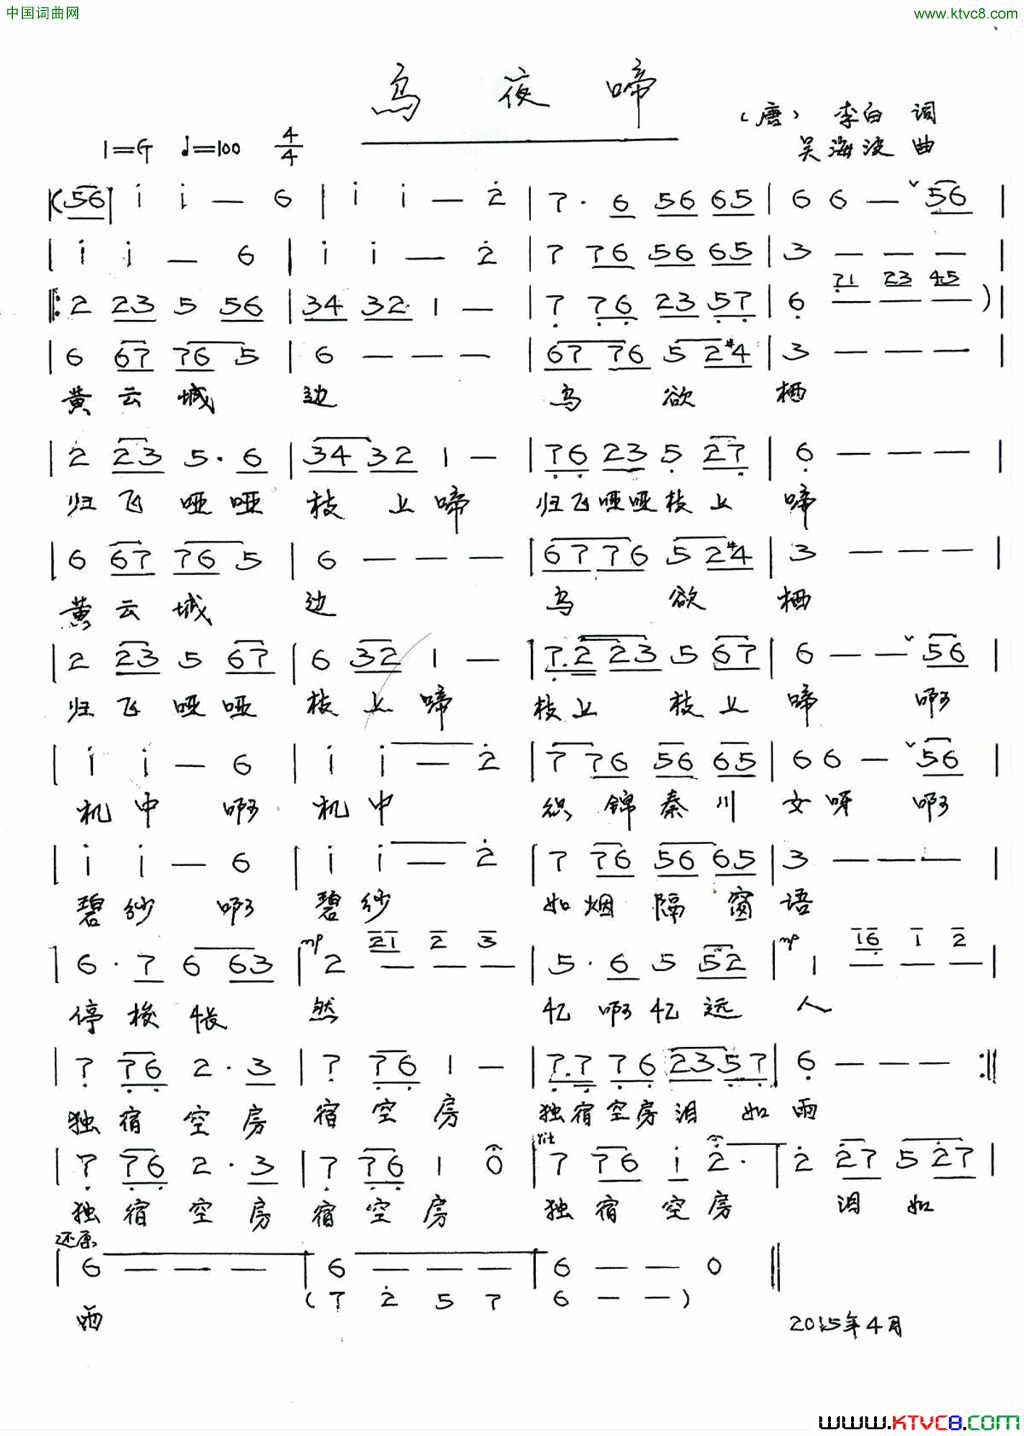 中国词曲网
www.ktvc8.com
乌夜啼
(唐) 李白 词
1=G ♩=100 4/4
吴海波 曲
|(56| i i — 6 | i i — 2 | 7· 6 56 65 | 6 6 — ∨56 |
| i i — 6 | i i — 2 | 7 76 56 65 | 3 — — — |
71 23 45
|: 2 23 5 56 | 34 32 1 — | 7 76 23 57 | 6 — — — ) |
| 6 67 76 5 | 6 — — — | 67 76 5 2#4 | 3 — — — |
黄云城 边 乌 欲 栖
| 2 23 5· 6 | 34 32 1 — | 76 23 5 27 | 6 — — — |
归飞哑哑 枝上啼 归飞哑哑枝上 啼
| 6 67 76 5 | 6 — — — | 67 76 5 2#4 | 3 — — — |
黄云城 边 乌 欲 栖
| 2 23 5 67 | 6 32 1 — | 7·2 23 5 67 | 6 — — ∨56 |
归飞哑哑 枝上啼 枝上 枝上 啼 啊
| i i — 6 | i i — 2 | 7 76 56 65 | 6 6 — ∨56 |
机中 啊 机中 织锦秦川 女呀 啊
| i i — 6 | i i — 2 | 7 76 56 65 | 3 — — — |
碧纱 啊 碧纱 如烟隔窗 语
mp 21 2 3 mp 16 1 2
| 6· 7 6 63 | 2 — — — | 5· 6 5 52 | 1 — — — |
停梭怅 然 忆啊忆远 人
| 7 76 2· 3 | 7 76 1 — | 7·7 76 23 57 | 6 — — — :||
独宿空房 宿空房 独宿空房泪如 雨
rit
| 7 76 2· 3 | 7 76 1 0 | 7 76 i 2· | 2 27 5 27 |
独宿空房 宿空房 独宿空房 泪如
还原
| 6 — — — | 6 — — — | 6 — — 0 ||
(7 2 5 7 6 — — )
雨
2015年4月
www.KTVC8.COM